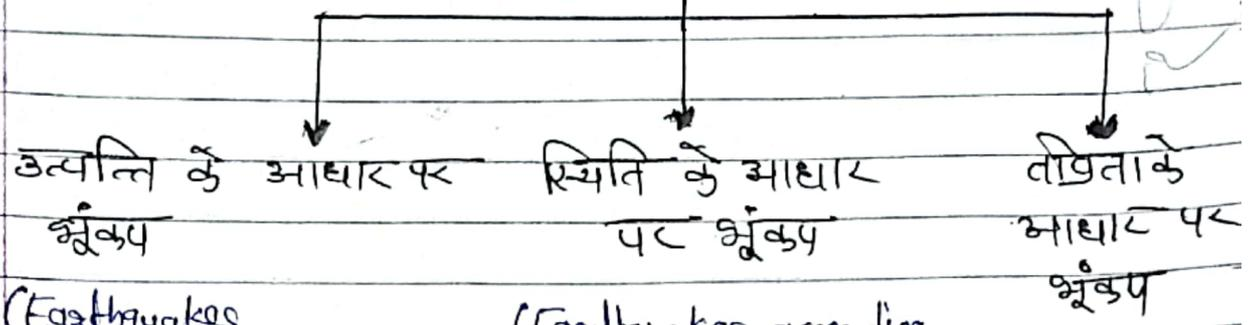 उत्पत्ति के आधार पर
भूंकप
स्थिति के आधार
पर भूंकप
तीव्रता के
आधार पर
भूंकप
(Earthquakes
(Earthquakes according